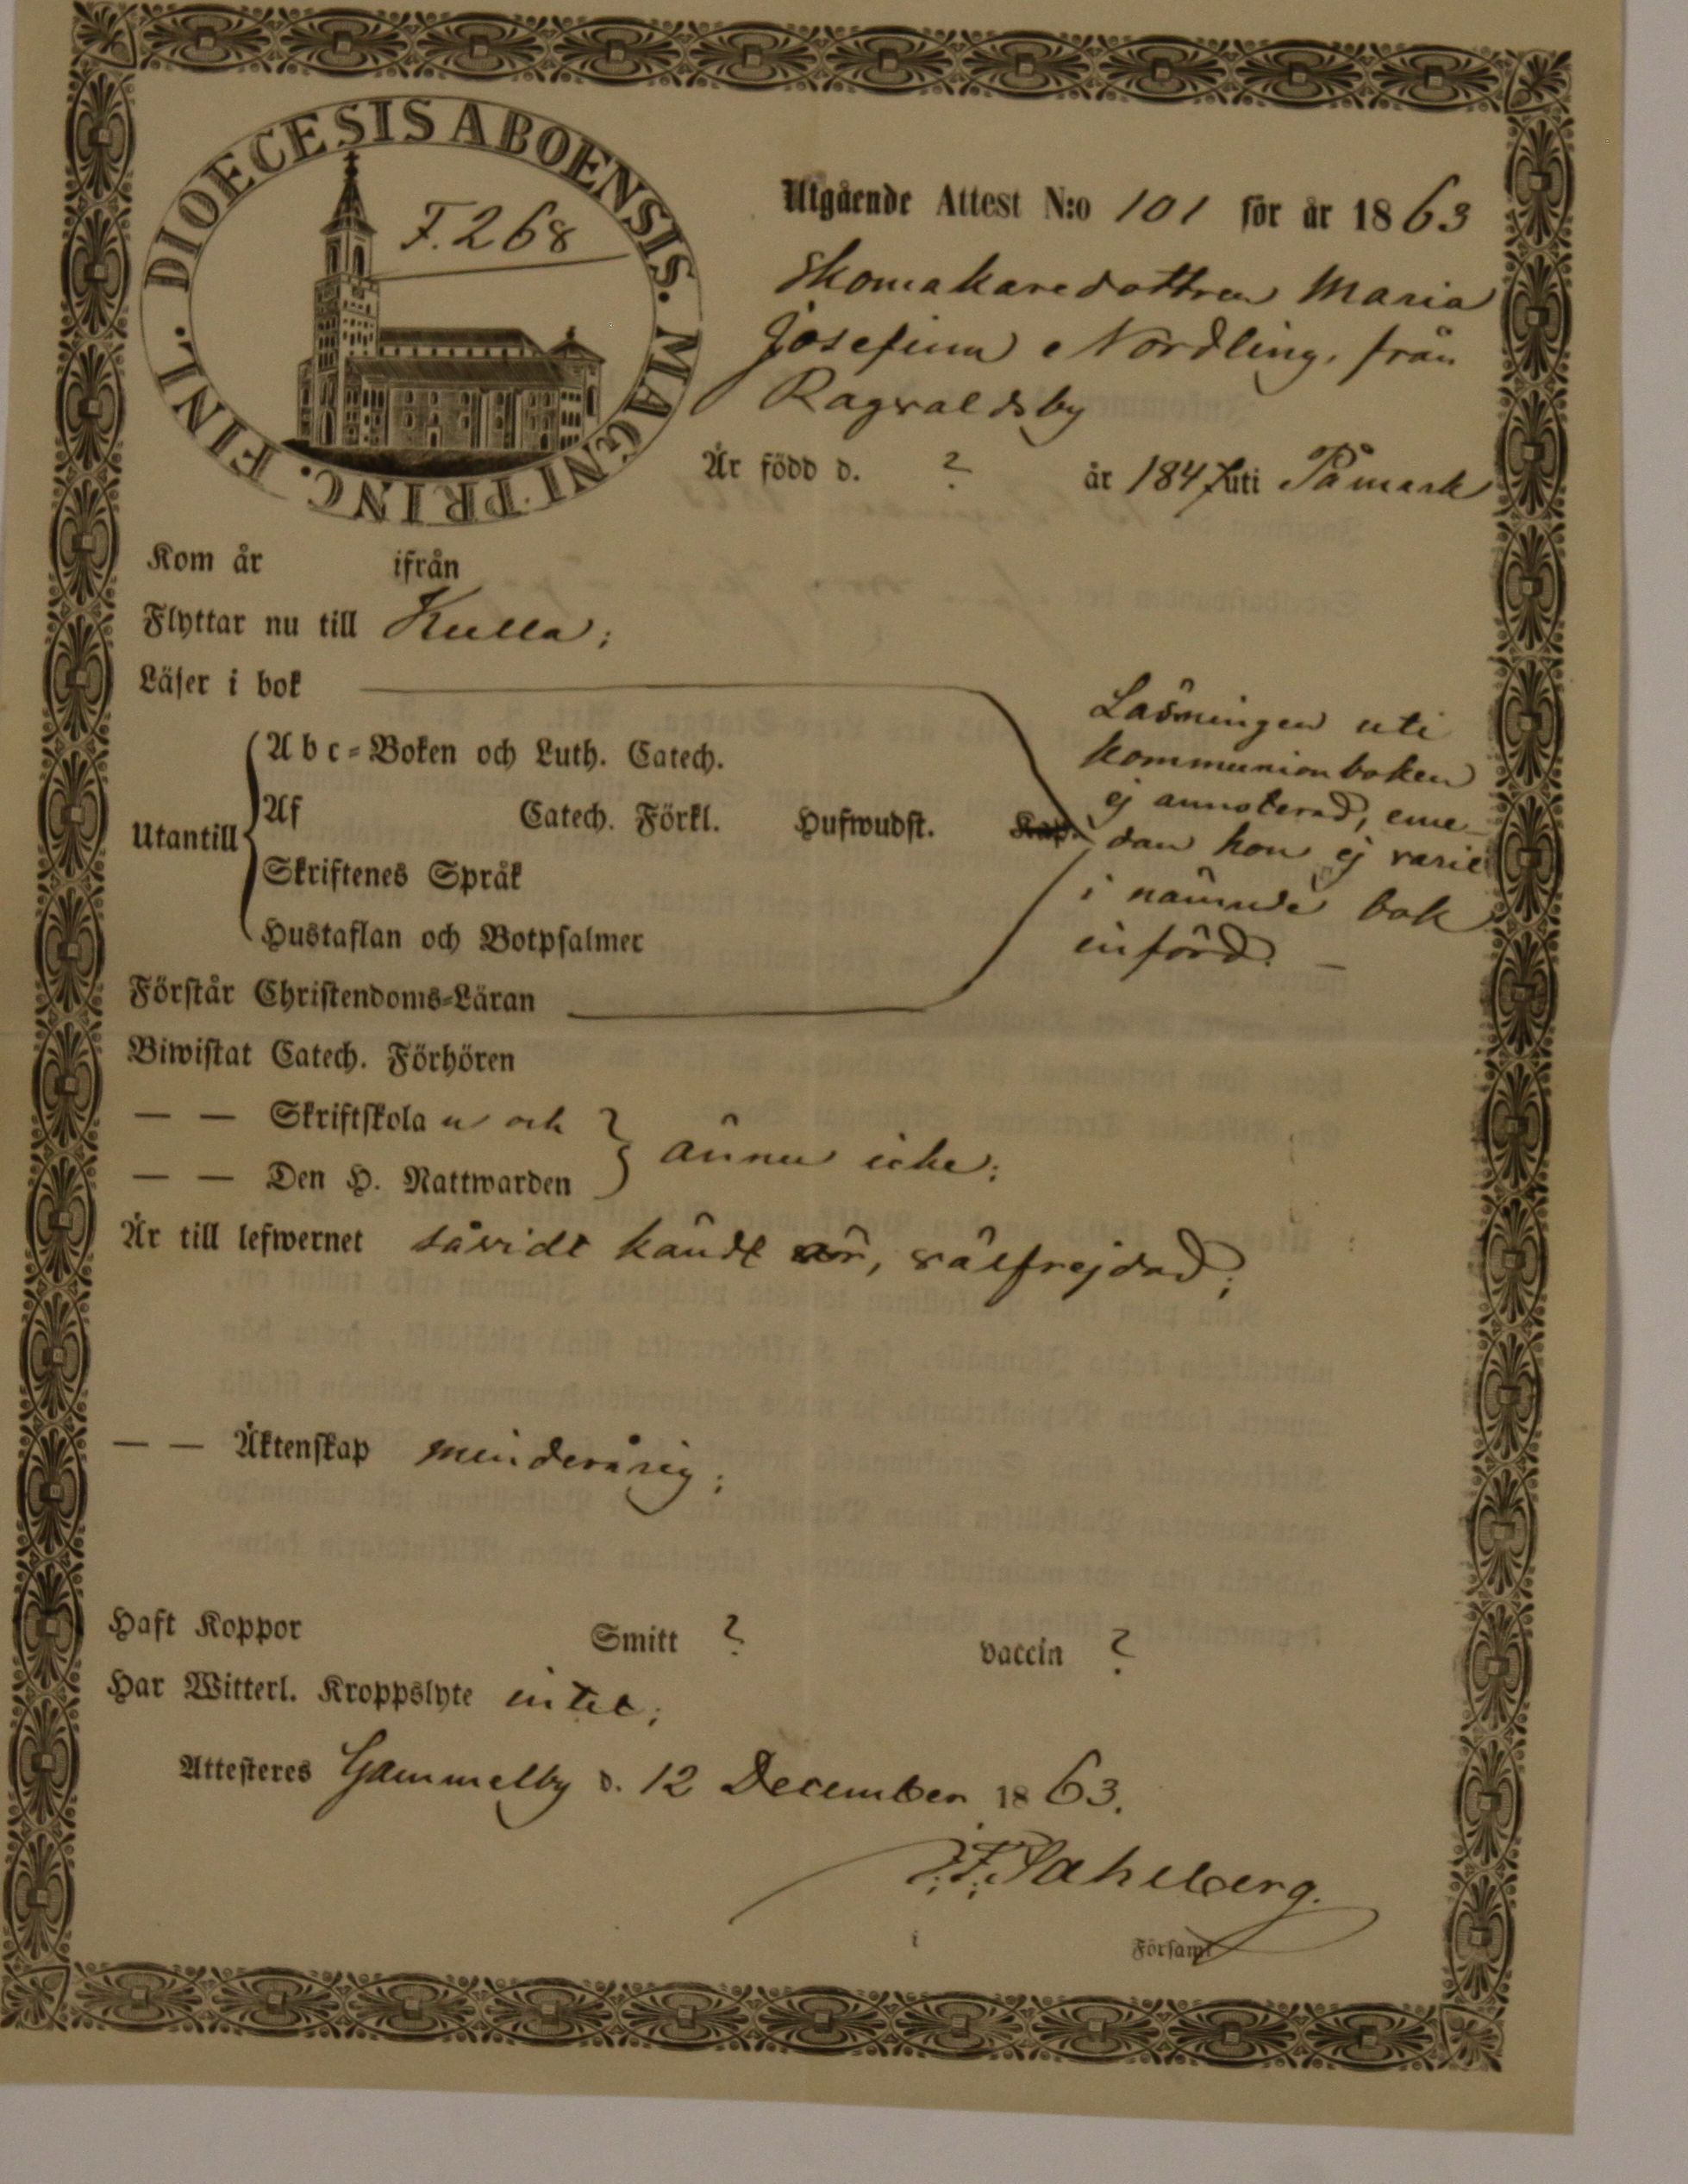 DIOECESIS ABOENSIS. MAGNI PRINC. FINL.
F. 268
Utgående Attest N:o 101 för år 1863
Skomakaredottren Maria
Josefina Nordling, från
Ragvaldsby
Är född d. ? år 1847 uti Påmark
Kom år ifrån
Flyttar nu till Kulla;
Läser i bok
Läsningen uti
kommunionboken
ej annoterad, eme-
dan hon ej varit
i nämnde bok
införd. —
Utantill
Abc-Boken och Luth. Catech.
Af Catech. Förkl. Hufwudst. Kap.
Skriftenes Språk
Hustaflan och Botpsalmer
Förstår Christendoms-Läran
Biwistat Catech. Förhören
— — Skriftskola n och
— — Den H. Nattwarden
ännu icke;
Är till lefwernet såvidt kändt är, välfrejdad;
— — Äktenskap minderårig;
Haft Koppor Smitt ? vaccin ?
Har Witterl. Kroppslyte intet;
Attesteres Gammelby d. 12 December 1863.
Sahlberg.
i Församl